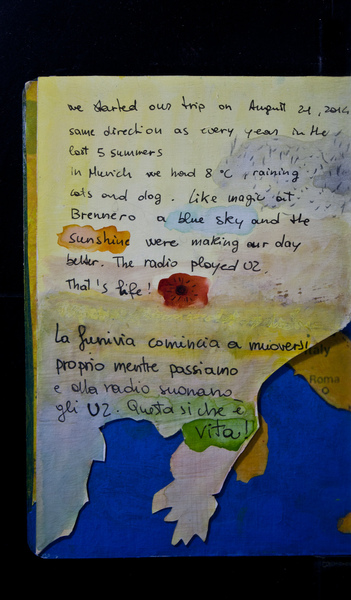 we started our trip on August 21, 2014
same direction as every year in the
last 5 summers
in Munich we had 8 °C, raining
cats and dog. Like magic at
Brennero a blue sky and the
sunshine were making our day
better. The radio played U2.
That's life!
La funivia comincia a muoversi
proprio mentre passiamo
e alla radio suonano
gli U2. Questa si che è
vita!
Italy
Roma